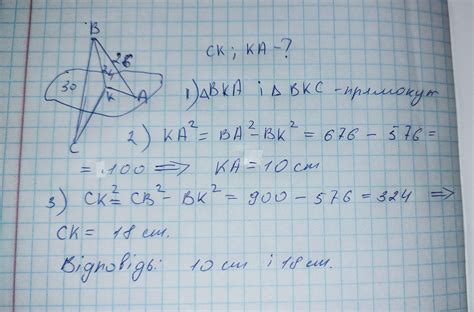 B
26
24
30
K
A
C
CK; KA - ?
1) △BKA і △BKC - прямокут
2) KA² = BA² - BK² = 676 - 576 =
= 100 ⟹ KA = 10 cm
3) CK² = CB² - BK² = 900 - 576 = 324 ⟹
CK = 18 см.
Відповідь: 10 cm і 18 cm.